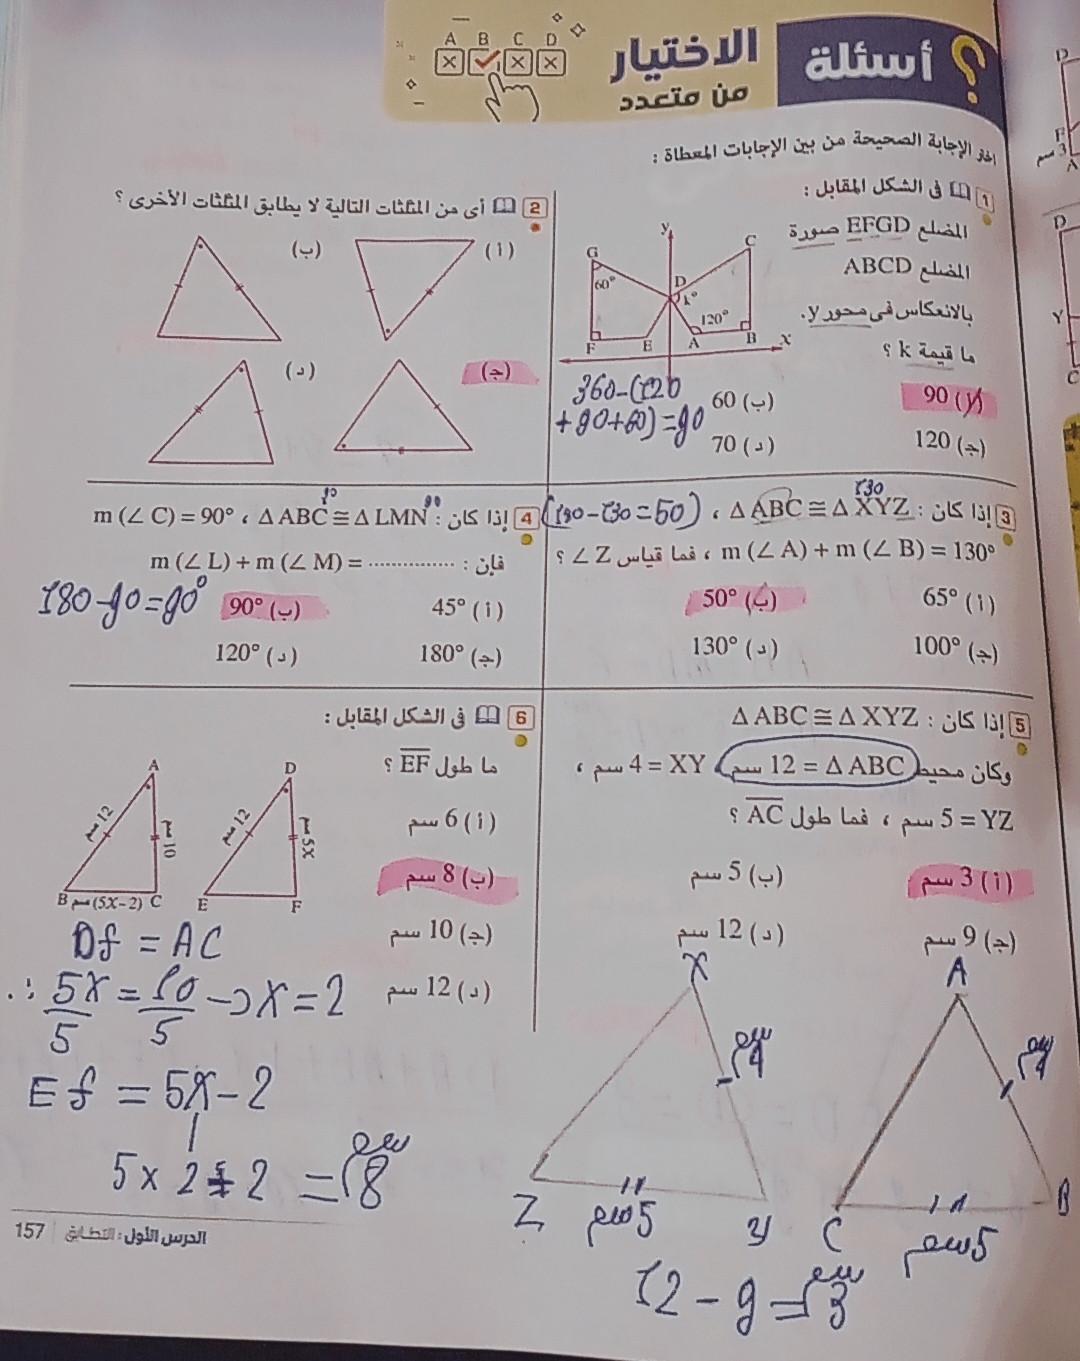 A B C D
أسئلة الاختيار
من متعدد
اختر الإجابة الصحيحة من بين الإجابات المعطاة :
1 فى الشكل المقابل :
المضلع EFGD صورة
المضلع ABCD
بالانعكاس فى محور y.
ما قيمة k ؟
y
G
C
60°
D
k°
120°
F E A B x
(أ) 90
(ب) 60
(ج) 120
(د) 70
360-(120
+90+60)=90
2 أى من المثلثات التالية لا يطابق المثلثات الأخرى ؟
(أ)
(ب)
(ج)
(د)
130
3 إذا كان : Δ ABC ≅ Δ XYZ ،
(180-130=50)
m (∠ A) + m (∠ B) = 130° ، فما قياس ∠ Z ؟
(أ) 65°
(ب) 50°
(ج) 100°
(د) 130°
90 90
4 إذا كان : Δ ABC ≅ Δ LMN ، m (∠ C) = 90°
فإن : m (∠ L) + m (∠ M) = ...............
(أ) 45°
(ب) 90°
180-90=90°
(ج) 180°
(د) 120°
5 إذا كان : Δ ABC ≅ Δ XYZ
وكان محيط Δ ABC = 12 سم ، XY = 4 سم ،
YZ = 5 سم ، فما طول AC ؟
(أ) 3 سم
(ب) 5 سم
(ج) 9 سم
(د) 12 سم
X
4 سم
Z 5 سم y
A
4 سم
C 5 سم B
12 - 9 = 3 سم
6 فى الشكل المقابل :
ما طول EF ؟
(أ) 6 سم
(ب) 8 سم
(ج) 10 سم
(د) 12 سم
A
12 سم
10 سم
B (5X-2) سم C
D
12 سم
5X سم
E F
Df = AC
∴ 5X/5 = 10/5 → X = 2
Ef = 5X - 2
5 x 2 - 2 = 8 سم
الدرس الأول : التطابق 157
D
F
3 سم
A
D
Y
C